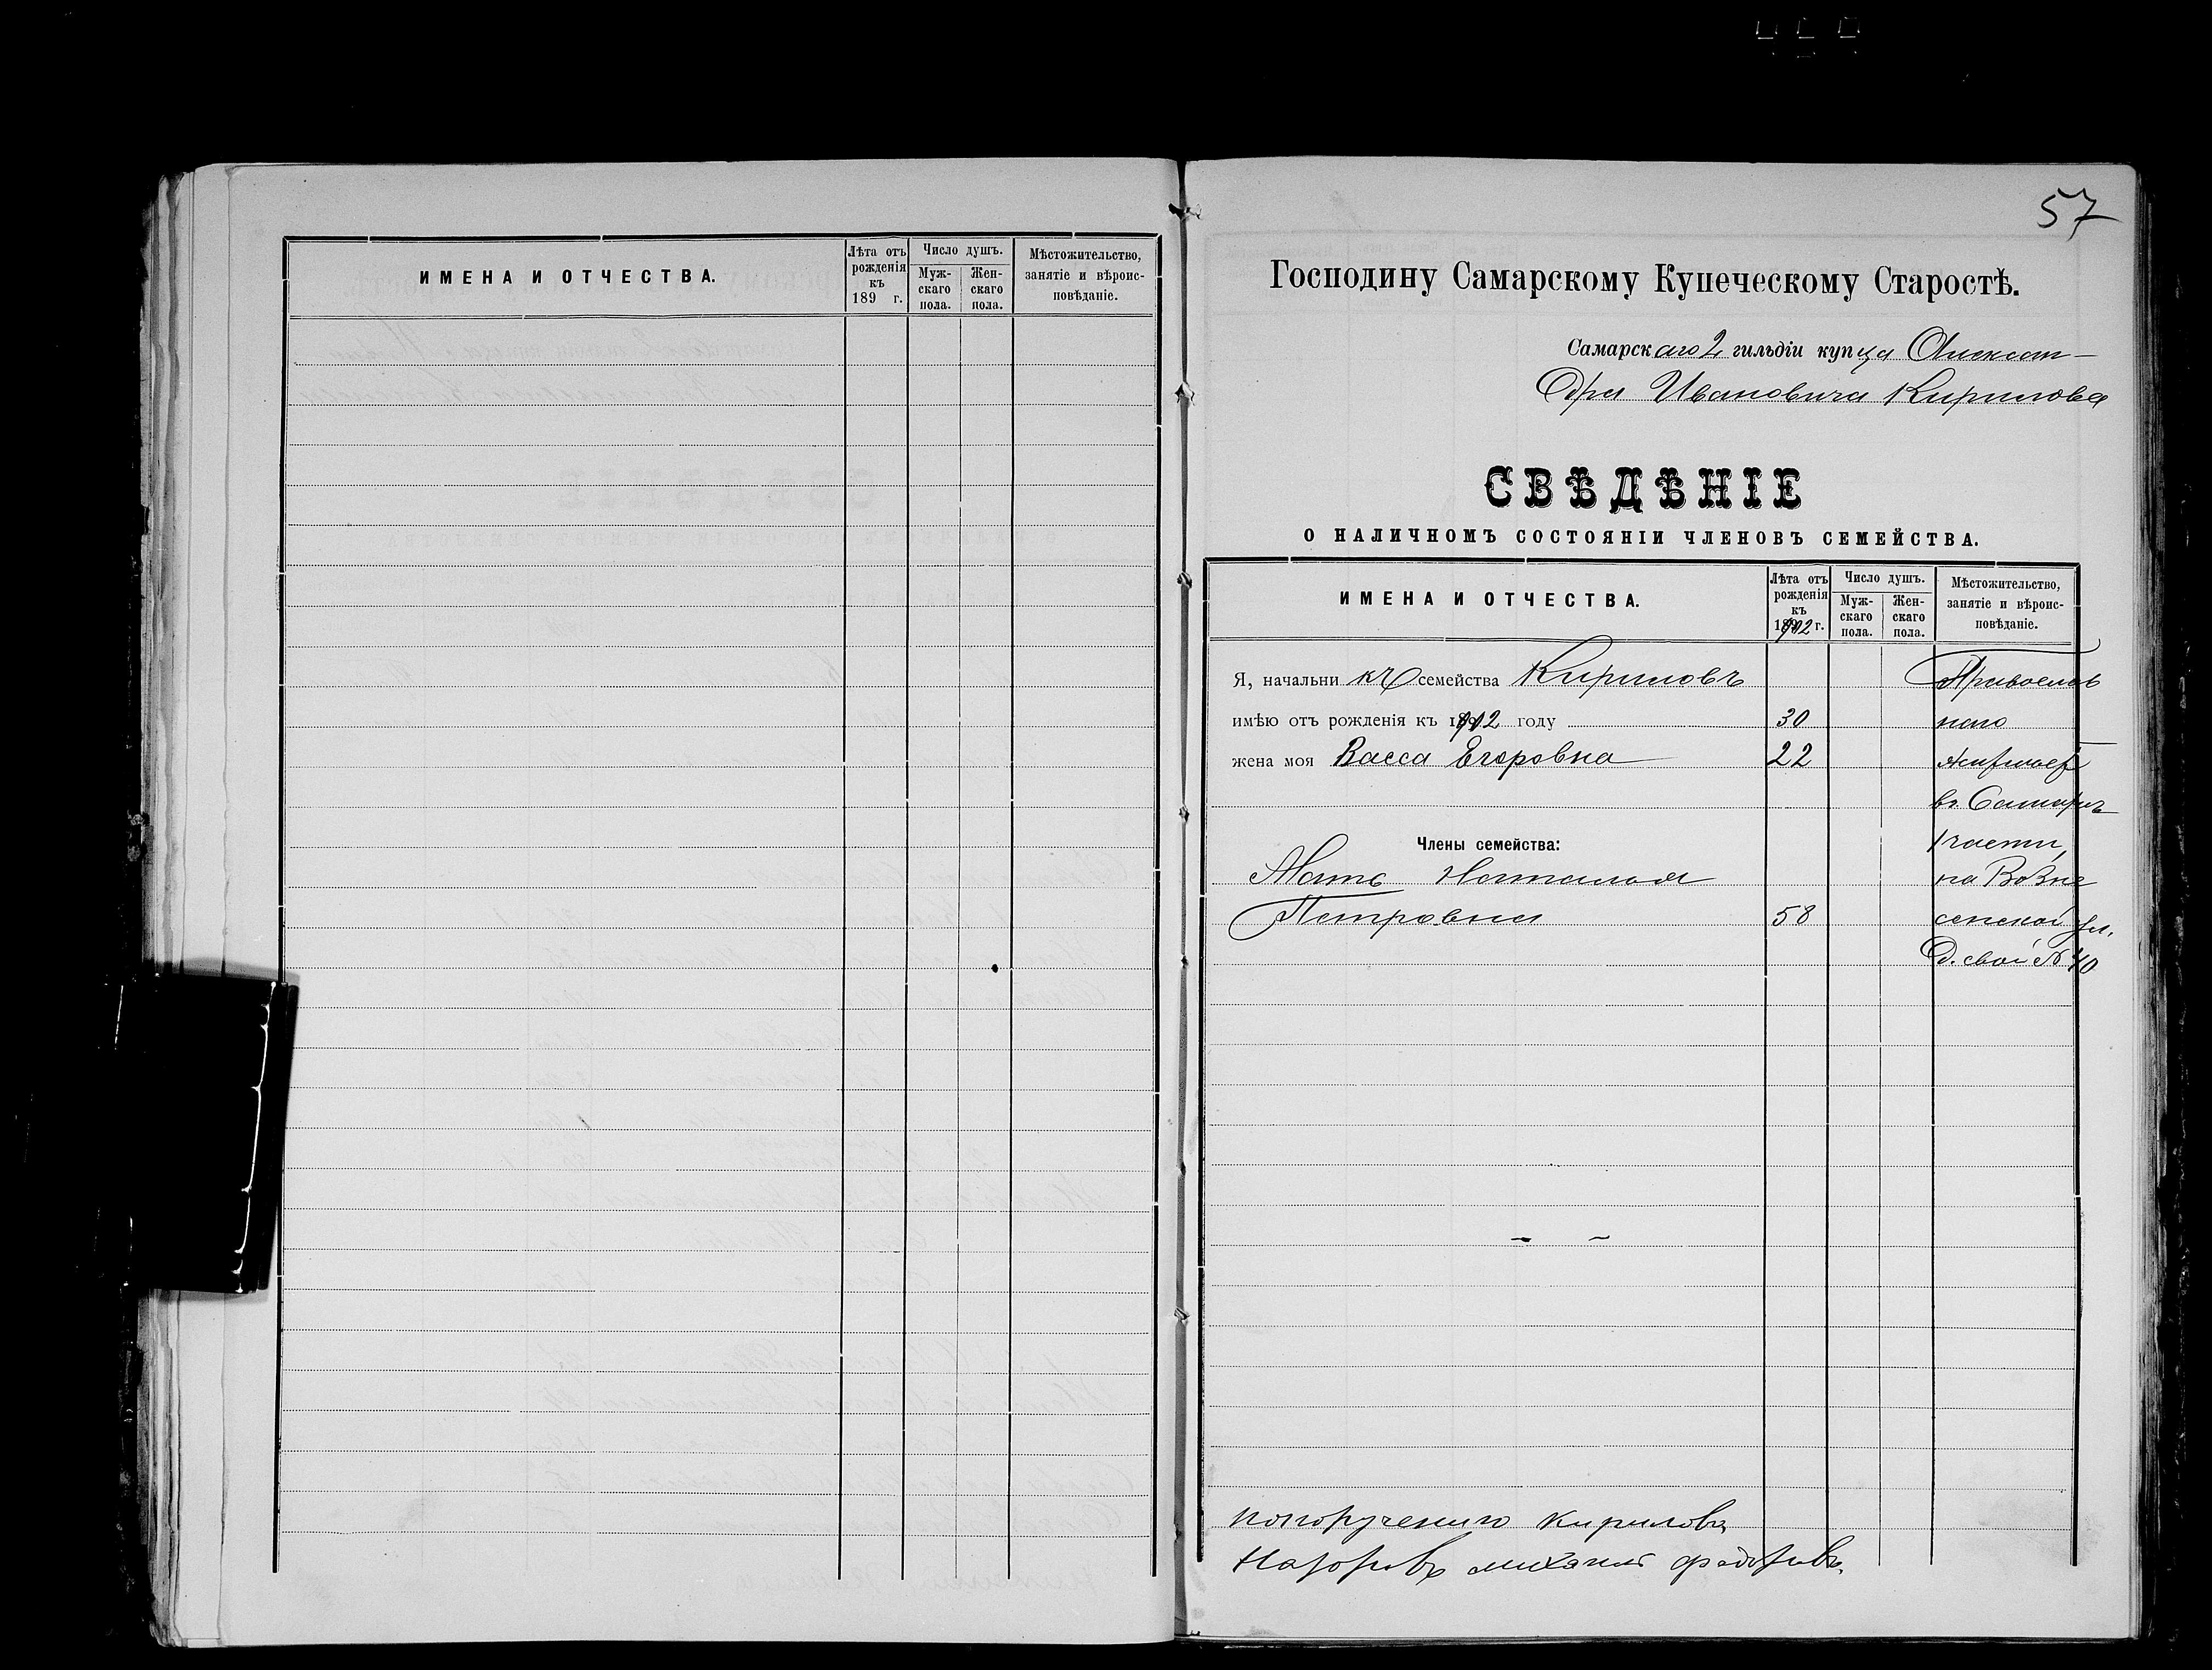 ИМЕНА И ОТЧЕСТВА.
Лѣта отъ рожденія къ 189 г.
Число душъ.
Мужскаго пола.
Женскаго пола.
Мѣстожительство, занятіе и вѣроисповѣданіе.
57
Господину Самарскому Купеческому Старостѣ.
Самарскаго 2 гильдіи купца Алексан-
дра Ивановича Кирилова
СВѢДѢНІЕ
О НАЛИЧНОМЪ СОСТОЯНІИ ЧЛЕНОВЪ СЕМЕЙСТВА.
ИМЕНА И ОТЧЕСТВА.
Лѣта отъ рожденія къ 1902 г.
Число душъ.
Муж-скаго пола.
Жен-скаго пола.
Мѣстожительство, занятіе и вѣроис-повѣданіе.
Я, начальникъ семейства Кириловъ Православ
имѣю отъ рожденія къ 1902 году 30 наго
жена моя Васса Егоровна 22
въ Самарѣ
Члены семейства: 1 части,
Мать Наталья на Возне
Петровна 58 сенской ул.
д. свой № 40
попорученію Кирилова
михаилъ федоровъ